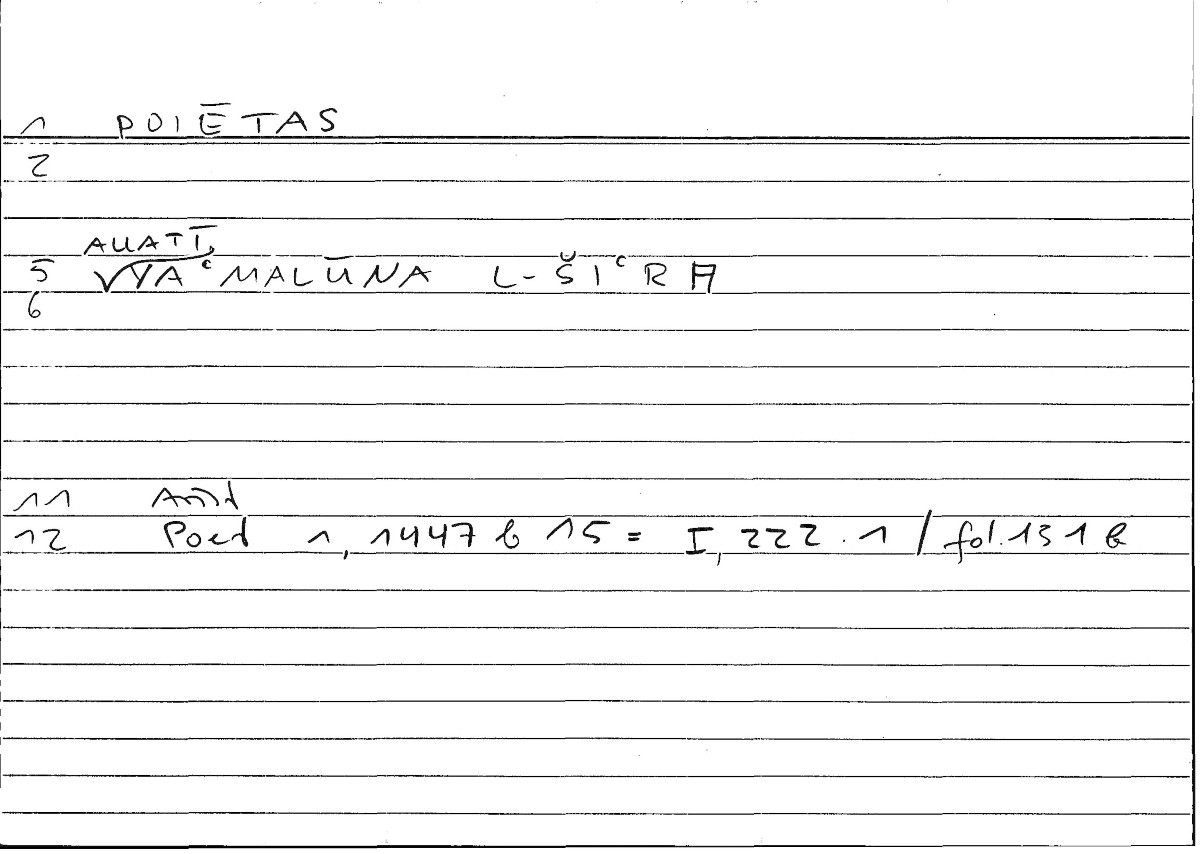 1 POIĒTAS
2
ALLATĪ
5 YAʿMALŪNA L-ŠIʿRA
6
11 Arist
12 Poet 1, 1447 b 15 = I, 222.1 / fol. 131 b